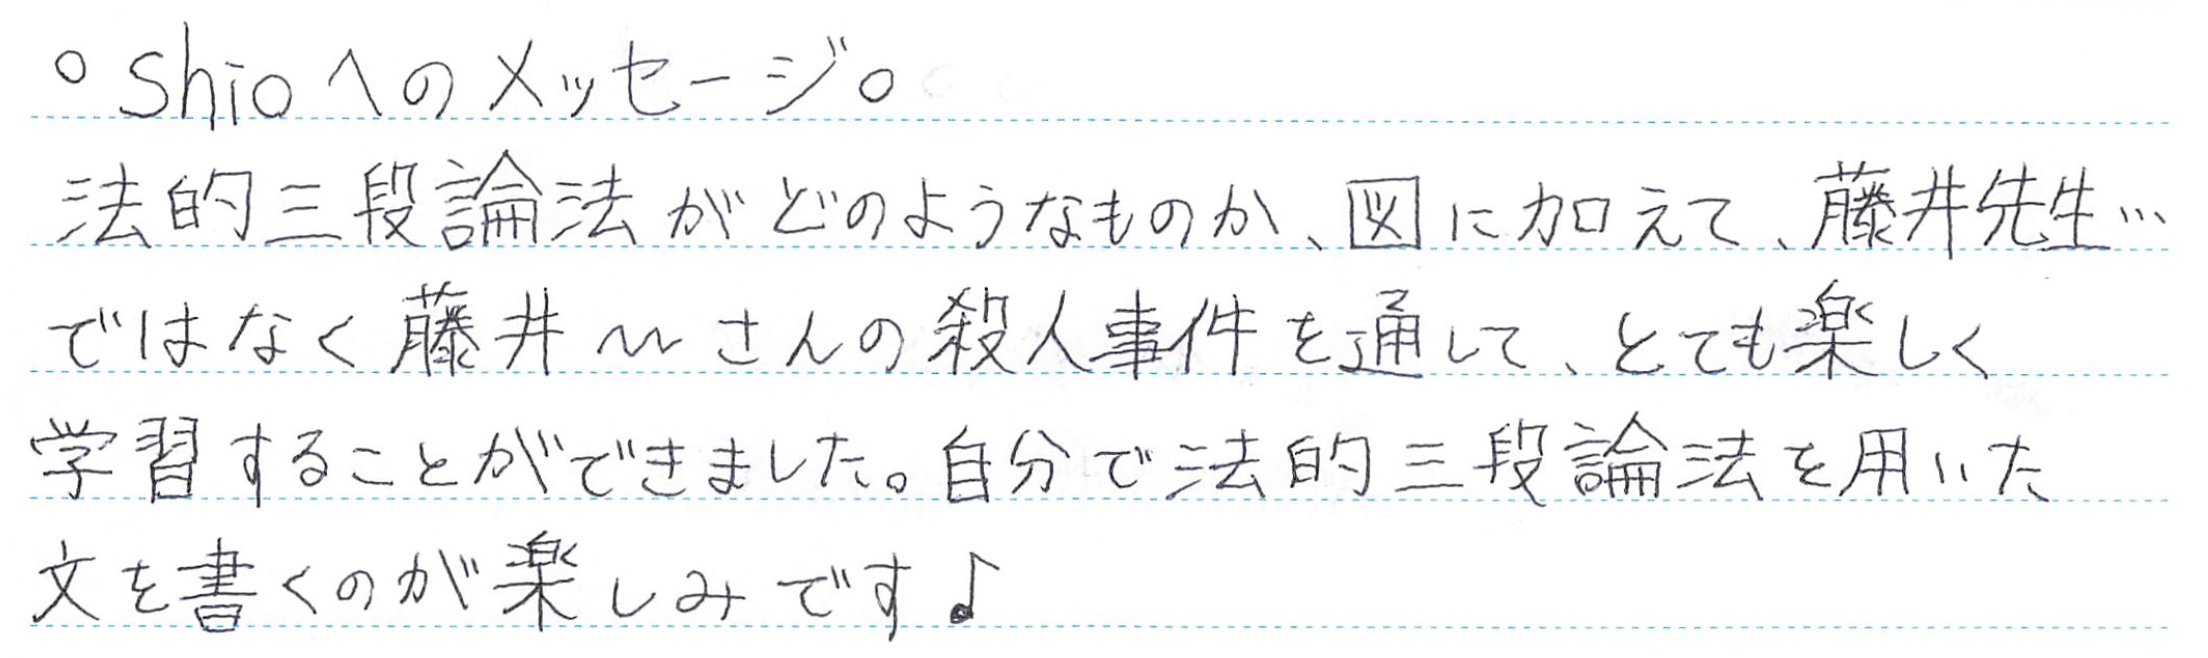 ○shioへのメッセージ○
法的三段論法がどのようなものか、図に加えて、藤井先生…
ではなく藤井〰さんの殺人事件を通して、とても楽しく
学習することができました。自分で法的三段論法を用いた
文を書くのが楽しみです♪